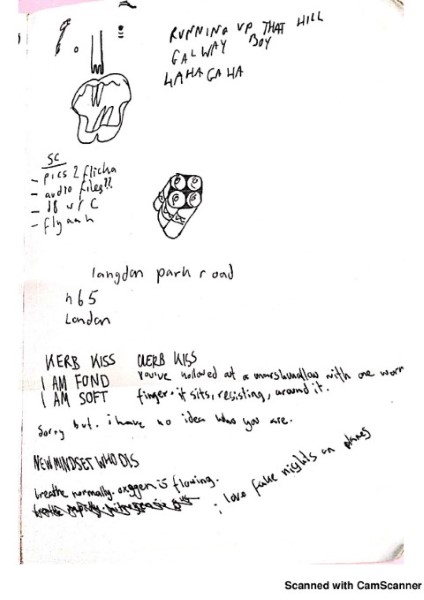 RUNNING UP THAT HILL
GALWAY BOY
HAHAGAHA
SC
- pics 2 flicha
- audio files??
-
- flyanh
langdon park road
n65
London
KERB KISS KERB KISS
I AM FOND you've hollowed at a marshmallow with one worn
I AM SOFT finger. it sits, resisting, around it.
Sorry but. i have no idea who you are.
NEW MINDSET WHO DIS
breathe normally. oxygen is flowing.
i love fake nights on planes
Scanned with CamScanner